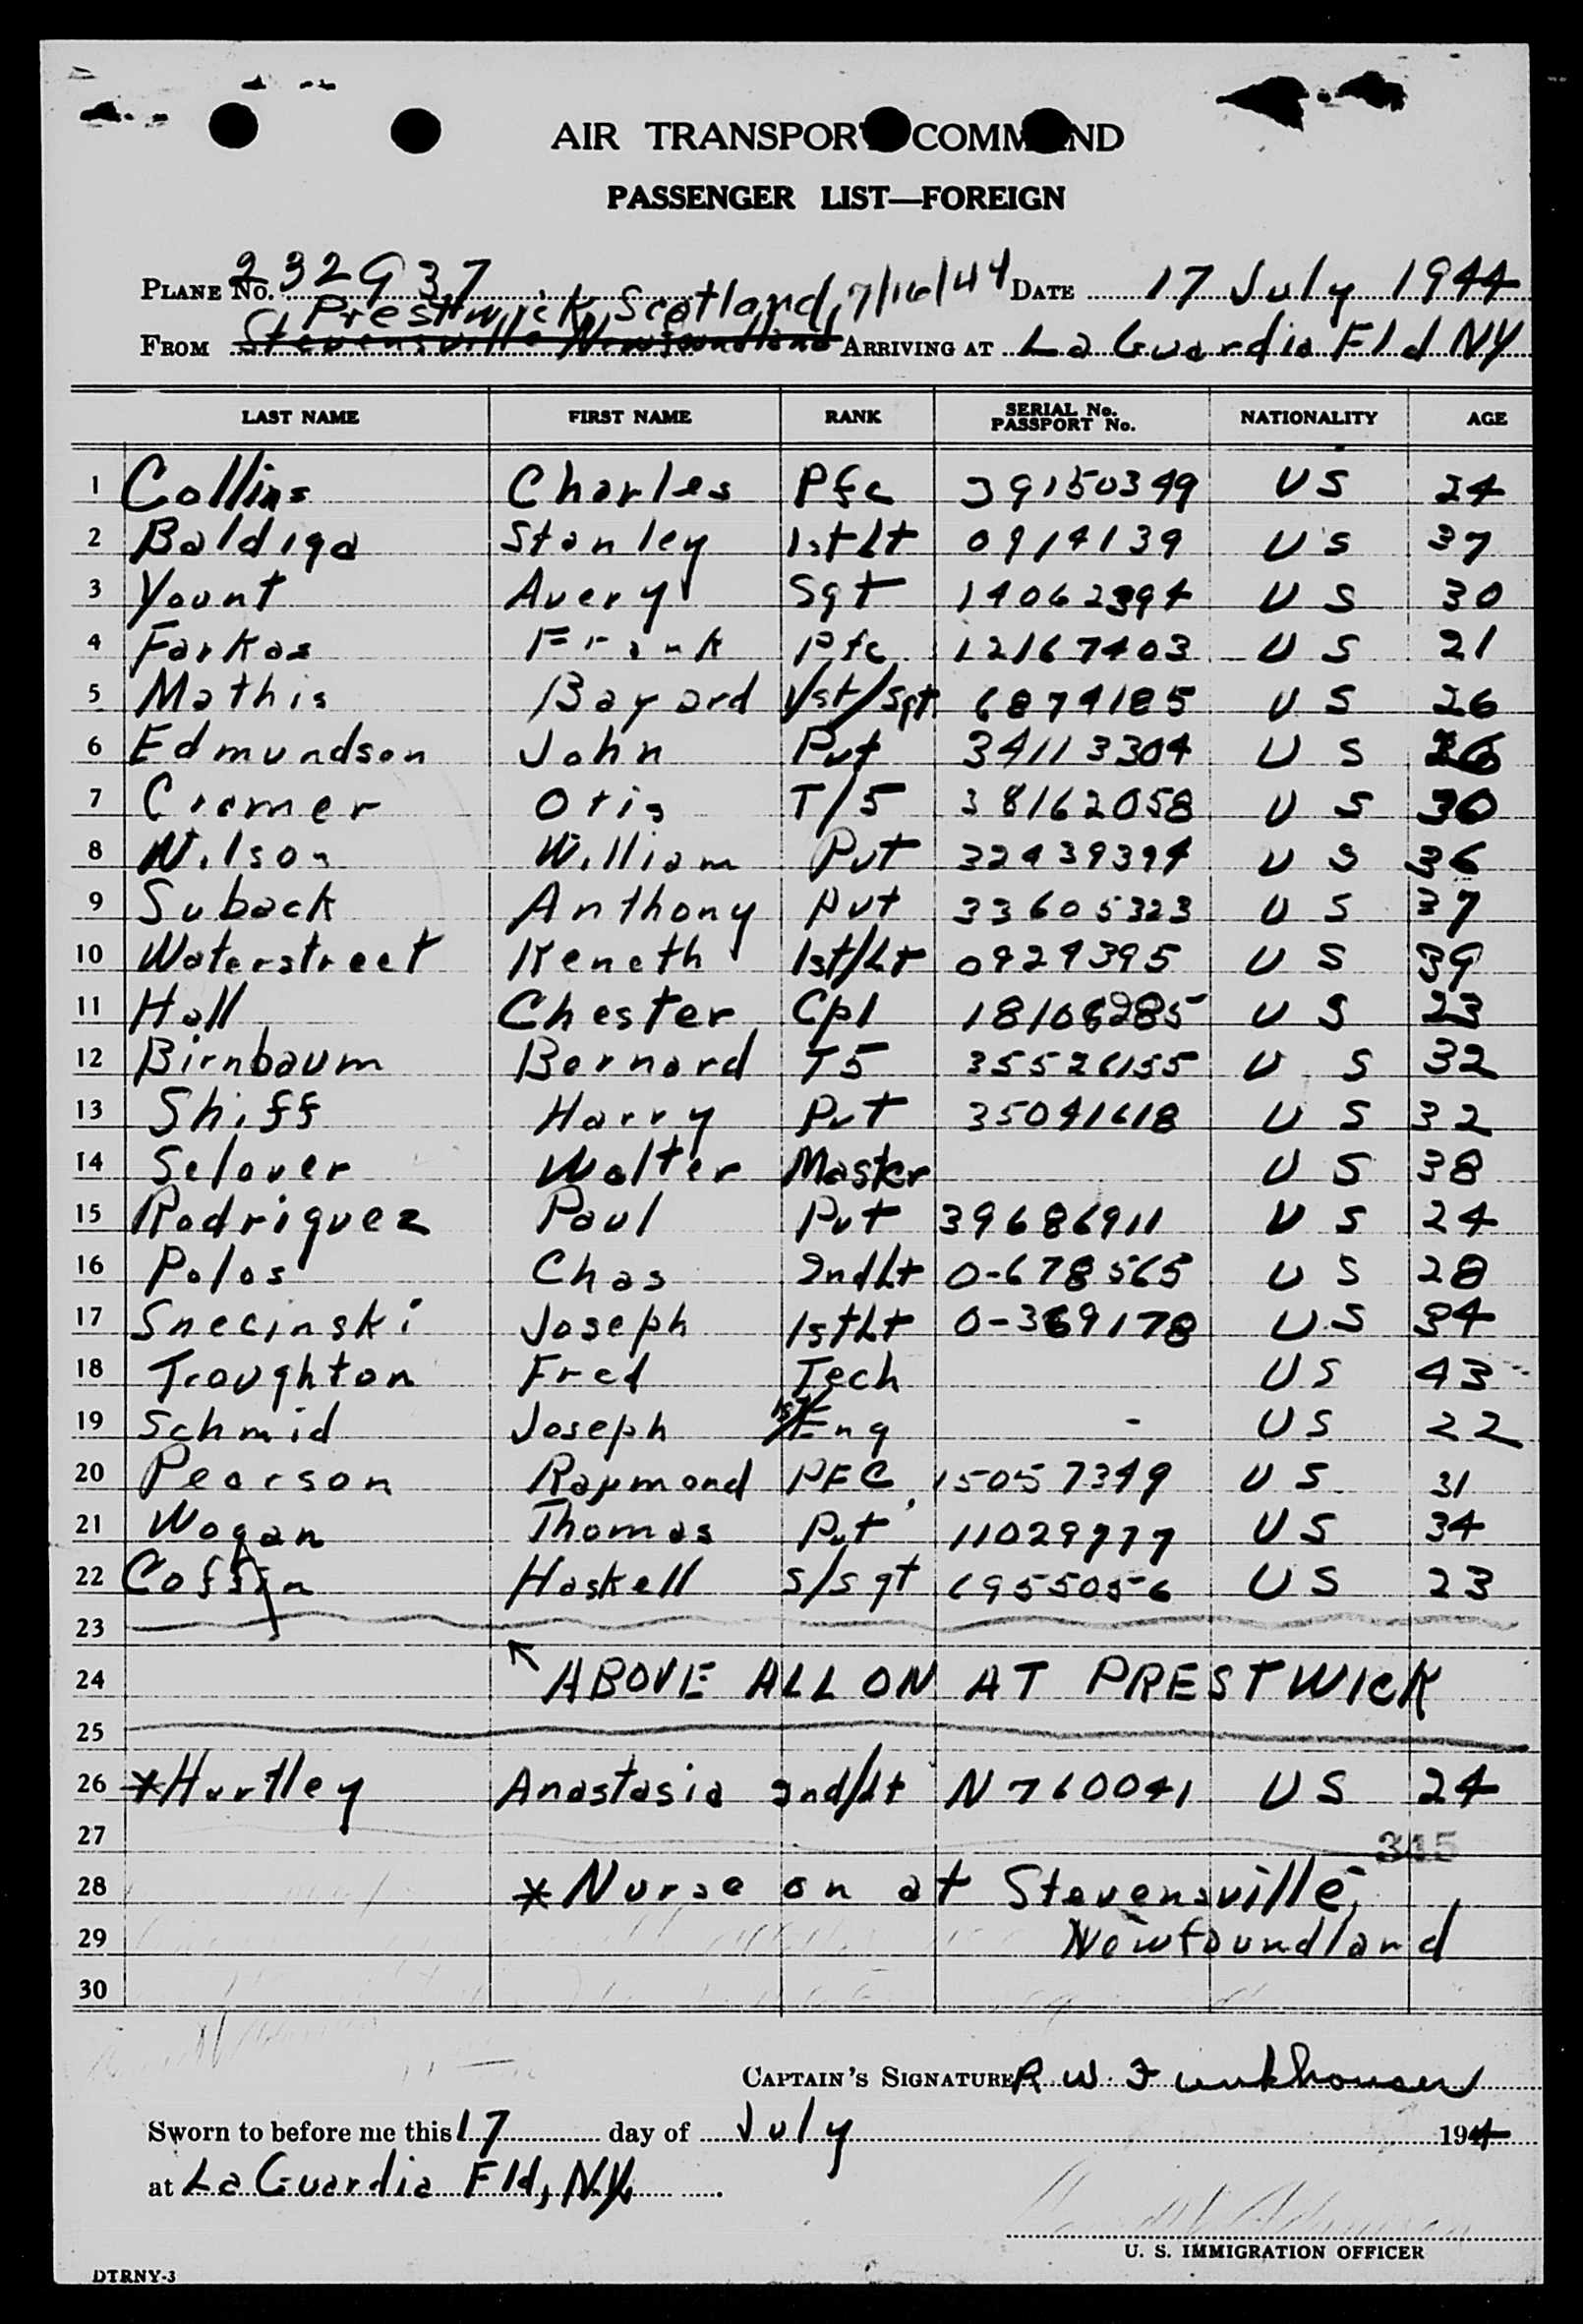 AIR TRANSPORT COMMAND
PASSENGER LIST—FOREIGN
PLANE No. 232937 DATE 17 July 1944
Prestwick, Scotland, 7/16/44
FROM Stevensville Newfoundland ARRIVING AT La Guardia Fld NY
LAST NAME FIRST NAME RANK SERIAL No. PASSPORT No. NATIONALITY AGE
1 Collins Charles Pfc 39150349 US 24
2 Baldiga Stanley 1st Lt 0914139 US 37
3 Yount Avery Sgt 14062394 US 30
4 Farkas Frank Pfc 12167403 US 21
5 Mathis Bayard 1st/Sgt 6874185 US 26
6 Edmundson John Pvt 34113304 US 26
7 Cramer Otis T/5 38162058 US 30
8 Wilson William Pvt 32439394 US 36
9 Suback Anthony Pvt 33605323 US 37
10 Waterstreet Keneth 1st/Lt 0924395 US 39
11 Hall Chester Cpl 18106285 US 23
12 Birnbaum Bernard T5 35526155 US 32
13 Shiff Harry Pvt 35041618 US 32
14 Selover Walter Master US 38
15 Rodriguez Paul Pvt 39686911 US 24
16 Polos Chas 2nd Lt 0-678565 US 28
17 Snecinski Joseph 1st Lt 0-369178 US 34
18 Troughton Fred Tech US 43
19 Schmid Joseph 1st/Eng - US 22
20 Pearson Raymond PFC 15057349 US 31
21 Wogan Thomas Pvt 11029777 US 34
22 Coffin Haskell S/Sgt 6955056 US 23
23
24 ABOVE ALL ON AT PRESTWICK
25
26 *Hartley Anastasia 2nd/Lt N760041 US 24
27 345
28 *Nurse on at Stevensville,
29 Newfoundland
30
CAPTAIN'S SIGNATURE R W Funkhouser
Sworn to before me this 17 day of July 1944
at La Guardia Fld, NY
U. S. IMMIGRATION OFFICER
DTRNY-3